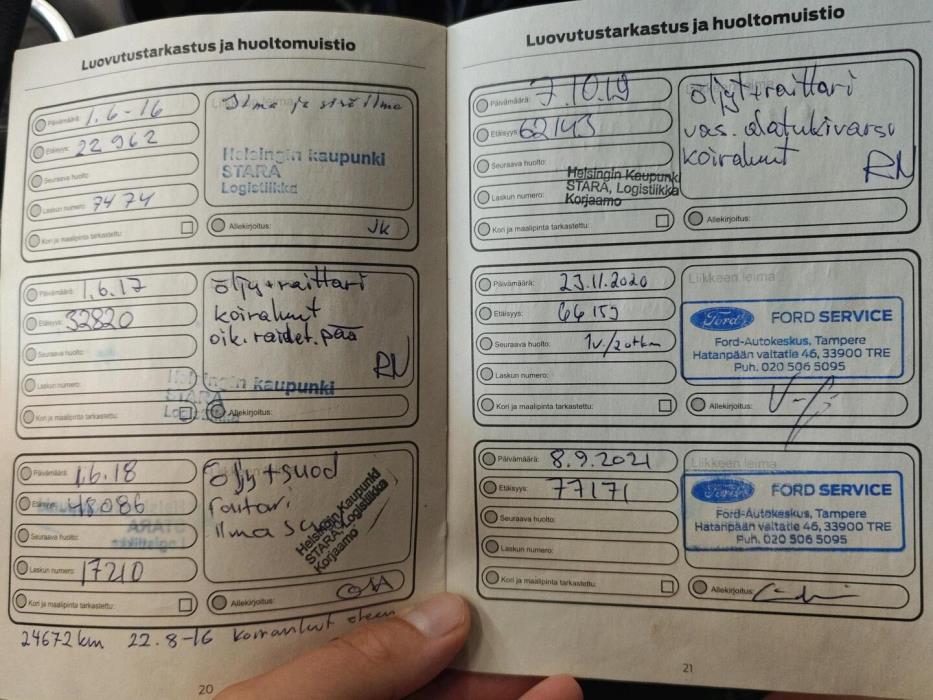 Luovutustarkastus ja huoltomuistio
Päivämäärä: 1.6-16
Etäisyys: 22962
Seuraava huolto:
Laskun numero: 7474
Kori ja maalipinta tarkastettu:
Ilma ja
Helsingin kaupunki
STARA
Logistiikka
Allekirjoitus: JK
Päivämäärä: 1.6.17
Etäisyys: 32820
Seuraava huolto:
Laskun numero:
Kori ja maalipinta tarkastettu:
öljy+raittari
koiraluut
oik. raidet. pää
RN
Helsingin kaupunki
STARA
Allekirjoitus:
Päivämäärä: 1.6.18
Etäisyys: 48086
Seuraava huolto:
Laskun numero: 17210
Kori ja maalipinta tarkastettu:
Öljy+suod
raitari
ilma
Helsingin Kaupunki
STARA, Logistiikka
Korjaamo
Allekirjoitus:
24672 km 22.8-16 Koiranluut eteen
20
Luovutustarkastus ja huoltomuistio
Päivämäärä: 7.10.19
Etäisyys: 62143
Seuraava huolto:
Laskun numero:
Kori ja maalipinta tarkastettu:
öljyt+raittari
vas. alatukivarsi
koiraluut
RN
Helsingin Kaupunki
STARA, Logistiikka
Korjaamo
Allekirjoitus:
Päivämäärä: 23.11.2020
Etäisyys: 66153
Seuraava huolto: 1v./20tkm
Laskun numero:
Kori ja maalipinta tarkastettu:
Liikkeen leima
Ford FORD SERVICE
Ford-Autokeskus, Tampere
Hatanpään valtatie 46, 33900 TRE
Puh. 020 506 5095
Allekirjoitus:
Päivämäärä: 8.9.2021
Etäisyys: 77171
Seuraava huolto:
Laskun numero:
Kori ja maalipinta tarkastettu:
Liikkeen leima
Ford FORD SERVICE
Ford-Autokeskus, Tampere
Hatanpään valtatie 46, 33900 TRE
Puh. 020 506 5095
Allekirjoitus:
21